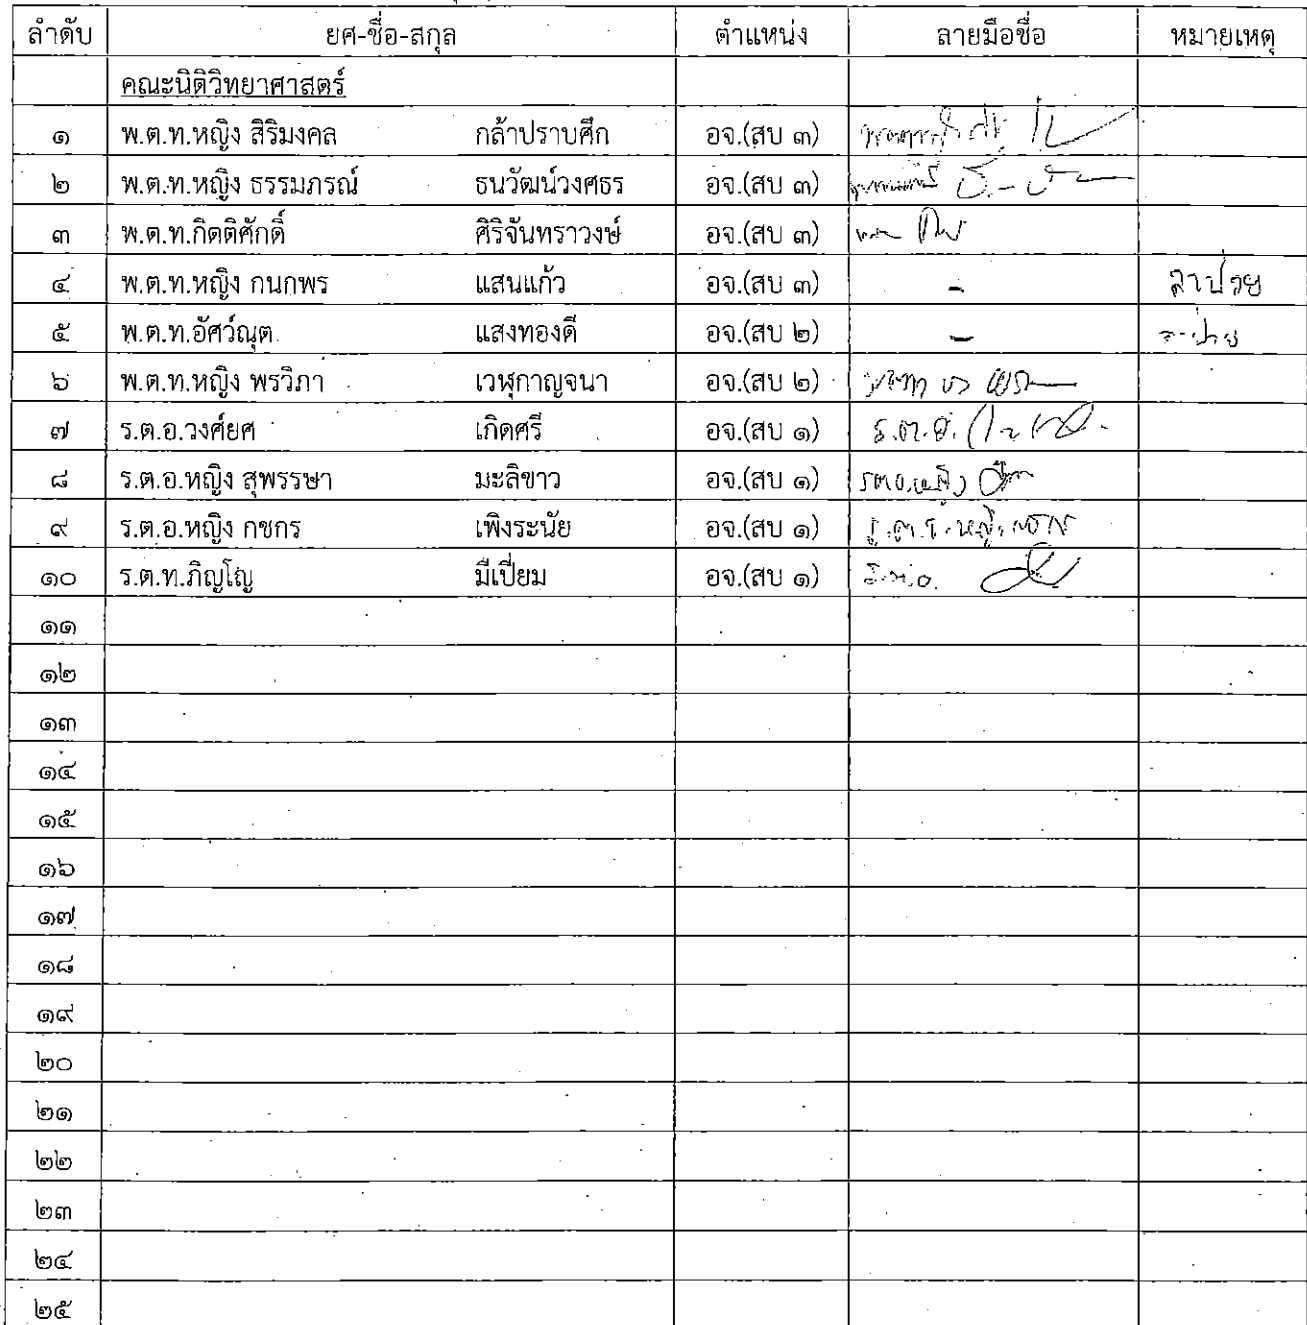 ลำดับ ยศ-ชื่อ-สกุล ตำแหน่ง ลายมือชื่อ หมายเหตุ
คณะนิติวิทยาศาสตร์
๑ พ.ต.ท.หญิง สิริมงคล กล้าปราบศึก อจ.(สบ ๓)
๒ พ.ต.ท.หญิง ธรรมภรณ์ ธนวัฒน์วงศธร อจ.(สบ ๓)
๓ พ.ต.ท.กิตติศักดิ์ ศิริจันทราวงษ์ อจ.(สบ ๓)
๔ พ.ต.ท.หญิง กนกพร แสนแก้ว อจ.(สบ ๓) - ลาป่วย
๕ พ.ต.ท.อัศว์ณุต แสงทองดี อจ.(สบ ๒) - ลาป่วย
๖ พ.ต.ท.หญิง พรวิภา เวฬุกาญจนา อจ.(สบ ๒)
๗ ร.ต.อ.วงศ์ยศ เกิดศรี อจ.(สบ ๑) ร.ต.อ.
๘ ร.ต.อ.หญิง สุพรรษา มะลิขาว อจ.(สบ ๑) รตอ.หญิง
๙ ร.ต.อ.หญิง กชกร เพิงระนัย อจ.(สบ ๑)
๑๐ ร.ต.ท.ภิญโญ มีเปี่ยม อจ.(สบ ๑)
๑๑
๑๒
๑๓
๑๔
๑๕
๑๖
๑๗
๑๘
๑๙
๒๐
๒๑
๒๒
๒๓
๒๔
๒๕